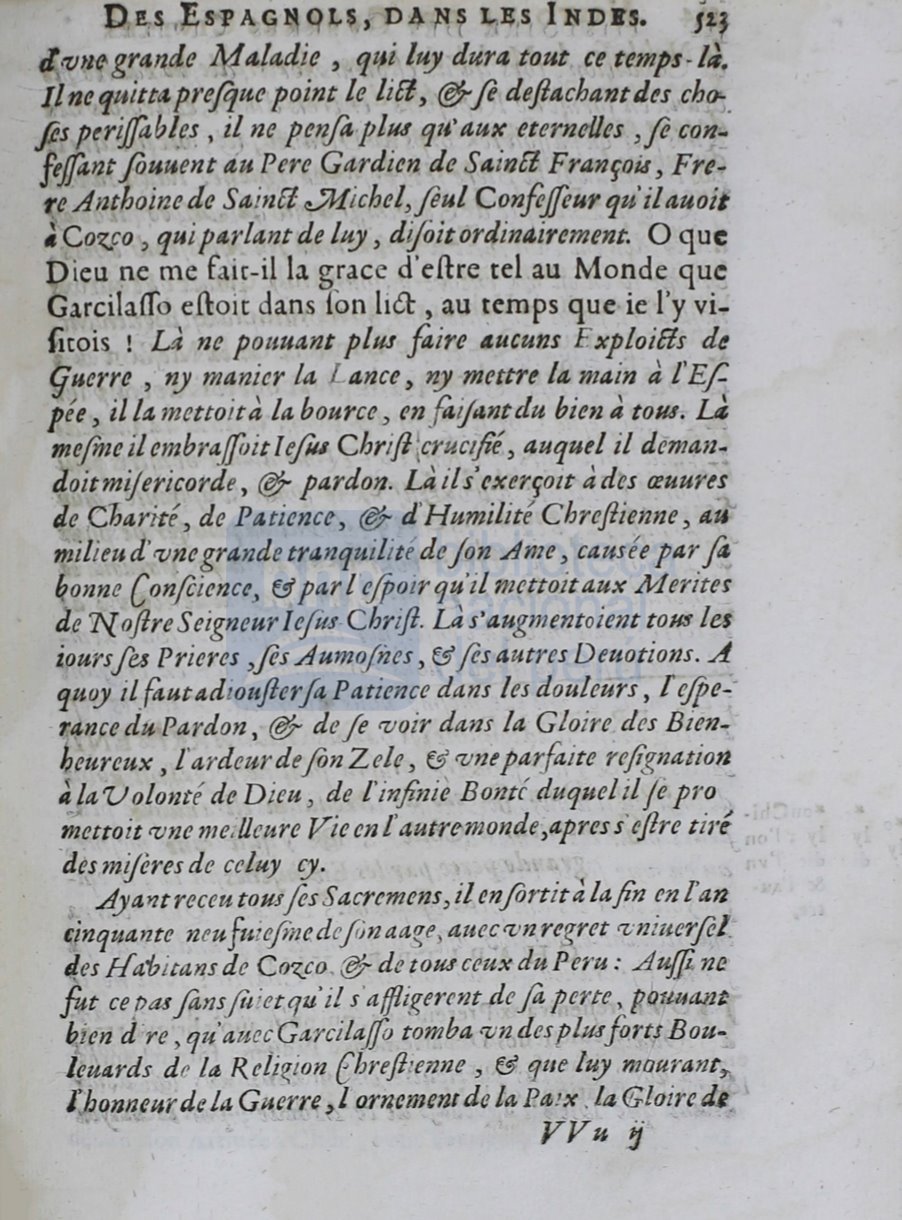 DES ESPAGNOLS, DANS LES INDES. 523
d'vne grande Maladie, qui luy dura tout ce temps-là.
Il ne quitta preſque point le lict, & ſe deſtachant des cho-
ſes periſſables, il ne penſa plus qu'aux eternelles, ſe con-
feſſant ſouuent au Pere Gardien de Sainct François, Fre-
re Anthoine de Sainct Michel, ſeul Confeſſeur qu'il auoit
à Cozco, qui parlant de luy, diſoit ordinairement. O que
Dieu ne me fait-il la grace d'eſtre tel au Monde que
Garcilaſſo eſtoit dans ſon lict, au temps que ie l'y vi-
ſitois ! Là ne pouuant plus faire aucuns Exploicts de
Guerre, ny manier la Lance, ny mettre la main à l'Eſ-
pée, il la mettoit à la bource, en faiſant du bien à tous. Là
meſme il embraſſoit Ieſus Chriſt crucifié, auquel il deman-
doit miſericorde, & pardon. Là il s'exerçoit à des œuures
de Charité, de Patience, & d'Humilité Chreſtienne, au
milieu d'vne grande tranquilité de ſon Ame, causée par ſa
bonne Conſcience, & par l eſpoir qu'il mettoit aux Merites
de Noſtre Seigneur Ieſus Chriſt. Là s'augmentoient tous les
iours ſes Prieres, ſes Aumoſnes, & ſes autres Deuotions. A
quoy il faut adiouſter ſa Patience dans les douleurs, l'eſpe-
rance du Pardon, & de ſe voir dans la Gloire des Bien-
heureux, l'ardeur de ſon Zele, & vne parfaite reſignation
à la Volonté de Dieu, de l'infinie Bonté duquel il ſe pro
mettoit vne meilleure Vie en l'autre monde, apres s'eſtre tiré
des miſères de celuy cy.
Ayant receu tous ſes Sacremens, il en ſortit à la fin en l'an
cinquante neufuieſme de ſon aage, auec vn regret vniuerſel
des Habitans de Cozco, & de tous ceux du Peru: Auſſi ne
fut ce pas ſans ſuiet qu'il s'affligerent de ſa perte, pouuant
bien dire, qu'auec Garcilaſſo tomba vn des plus forts Bou-
leuards de la Religion Chreſtienne, & que luy mourant,
l'honneur de la Guerre, l ornement de la Paix, la Gloire de
VVu ij